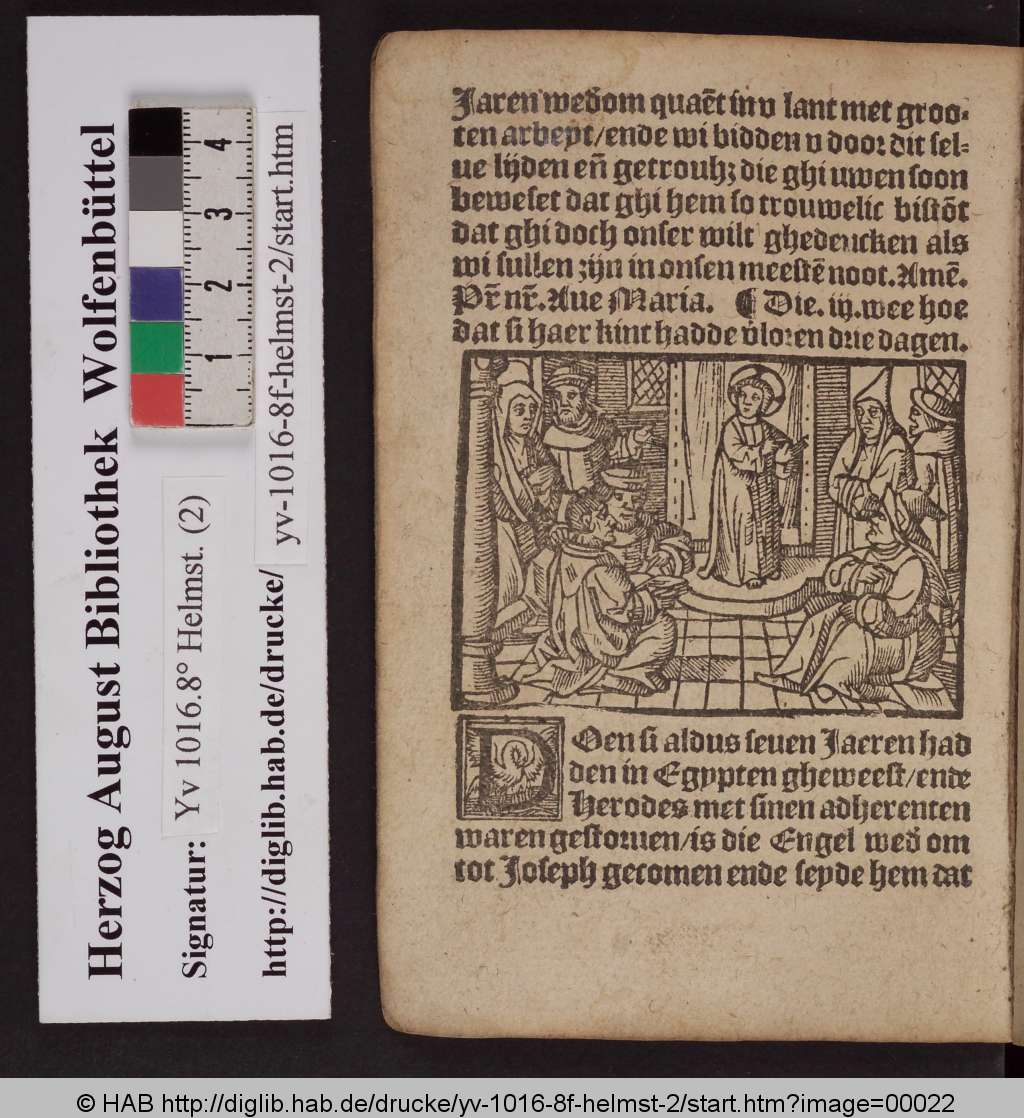 Herzog August Bibliothek Wolfenbüttel
Signatur: Yv 1016.8° Helmst. (2)
http://diglib.hab.de/drucke/ yv-1016-8f-helmst-2/start.htm
1 2 3 4
Jaren wed̄om quaēt in v lant met groo⸗
ten arbeyt/ende wi bidden v door dit sel⸗
ue lijden eñ getrouhꝫ die ghi uwen soon
beweset dat ghi hem so trouwelic bistōt
dat ghi doch onser wilt ghedencken als
wi sullen zijn in onsen meestē noot. Amē.
Pr̄ nr̄. Aue Maria. ¶ Die. iij. wee hoe
dat si haer kint hadde v̄loren drie dagen.
DOen si aldus seuen Jaeren had
den in Egypten gheweest/ende
Herodes met sinen adherenten
waren gestoruen/is die Engel wed̄ om
tot Joseph gecomen ende seyde hem dat
© HAB http://diglib.hab.de/drucke/yv-1016-8f-helmst-2/start.htm?image=00022